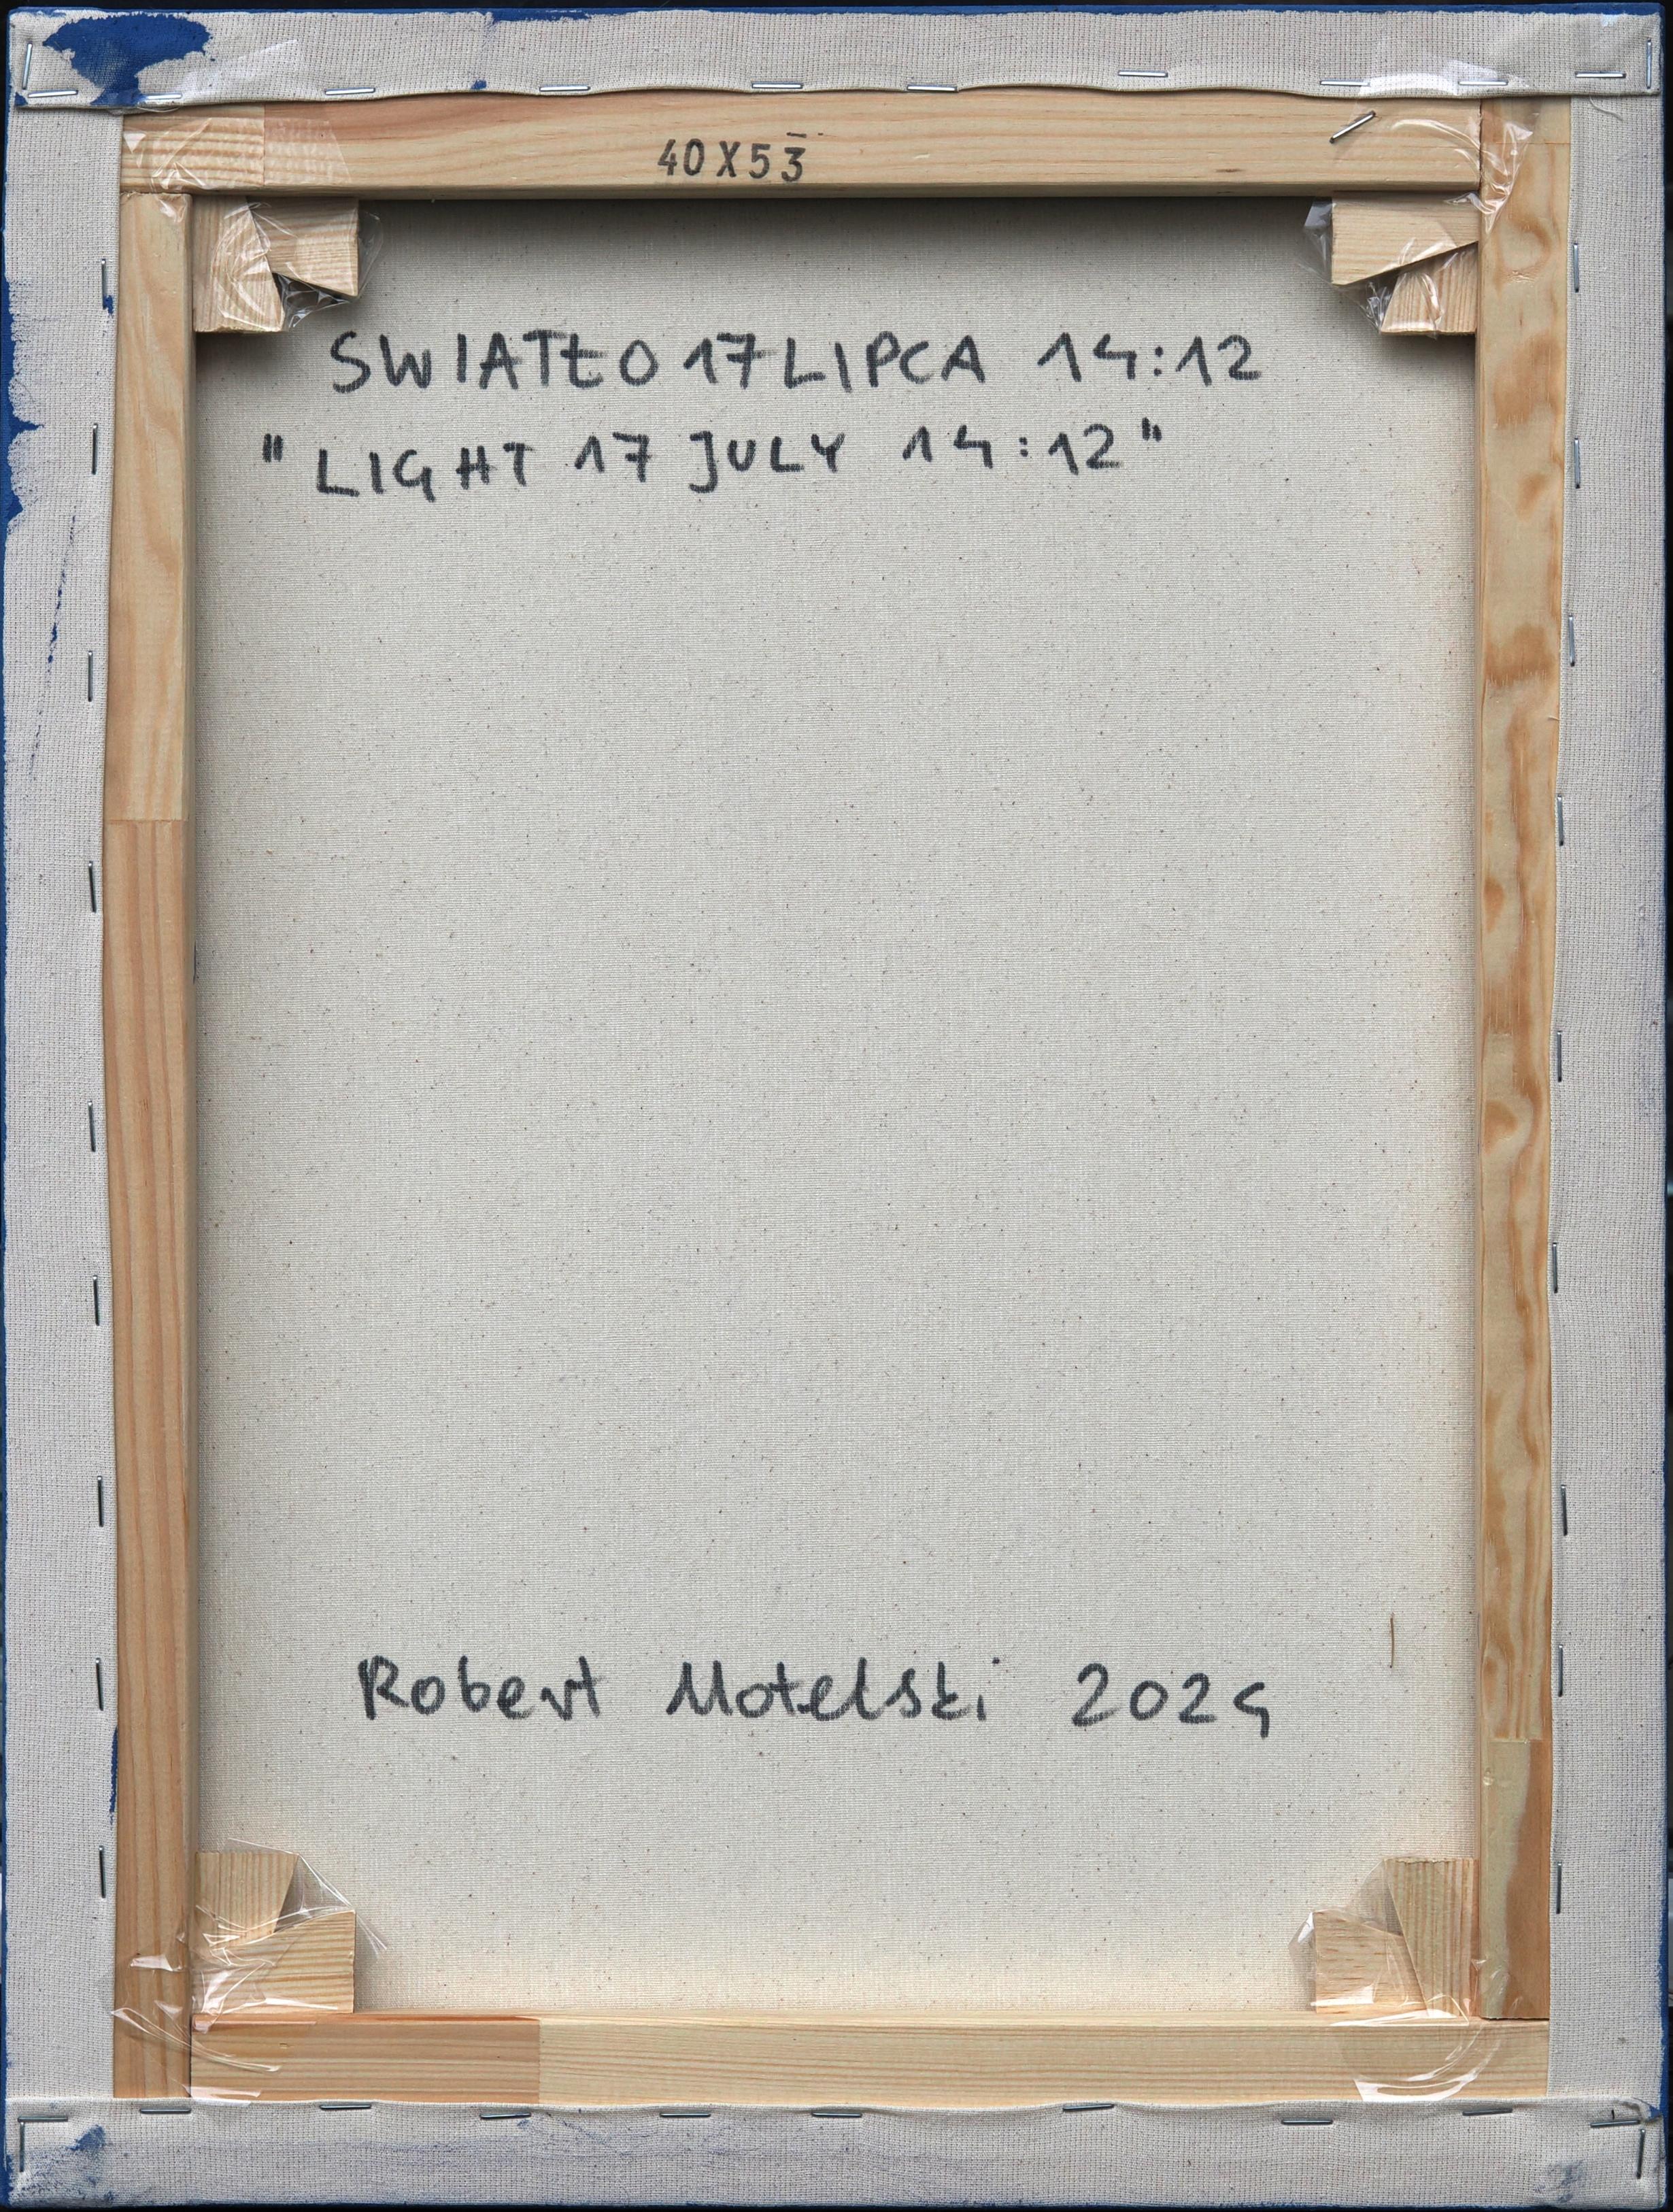 40X53
SWIATŁO 17 LIPCA 14:12
"LIGHT 17 JULY 14:12"
Robert Motelski 2024